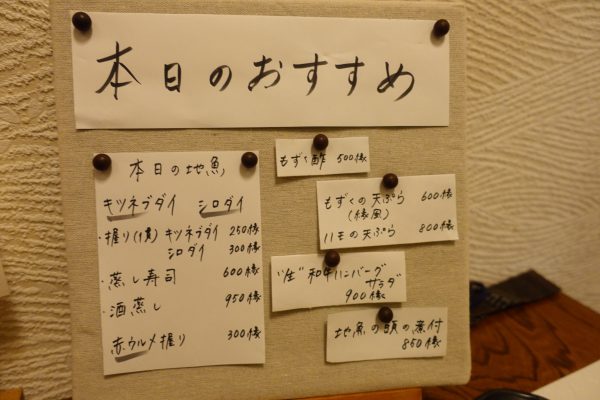 本日のおすすめ
本日の地魚
キツネブダイ シロダイ
・握り(1貫) キツネブダイ 250縁
シロダイ 300縁
・蒸し寿司 600縁
・酒蒸し 950縁
赤ウルメ握り 300縁
もずく酢 500縁
もずくの天ぷら 600縁
(縁風)
ハモの天ぷら 800縁
"生"和牛ハンバーグ
サラダ
900縁
地魚の頭の煮付
850縁